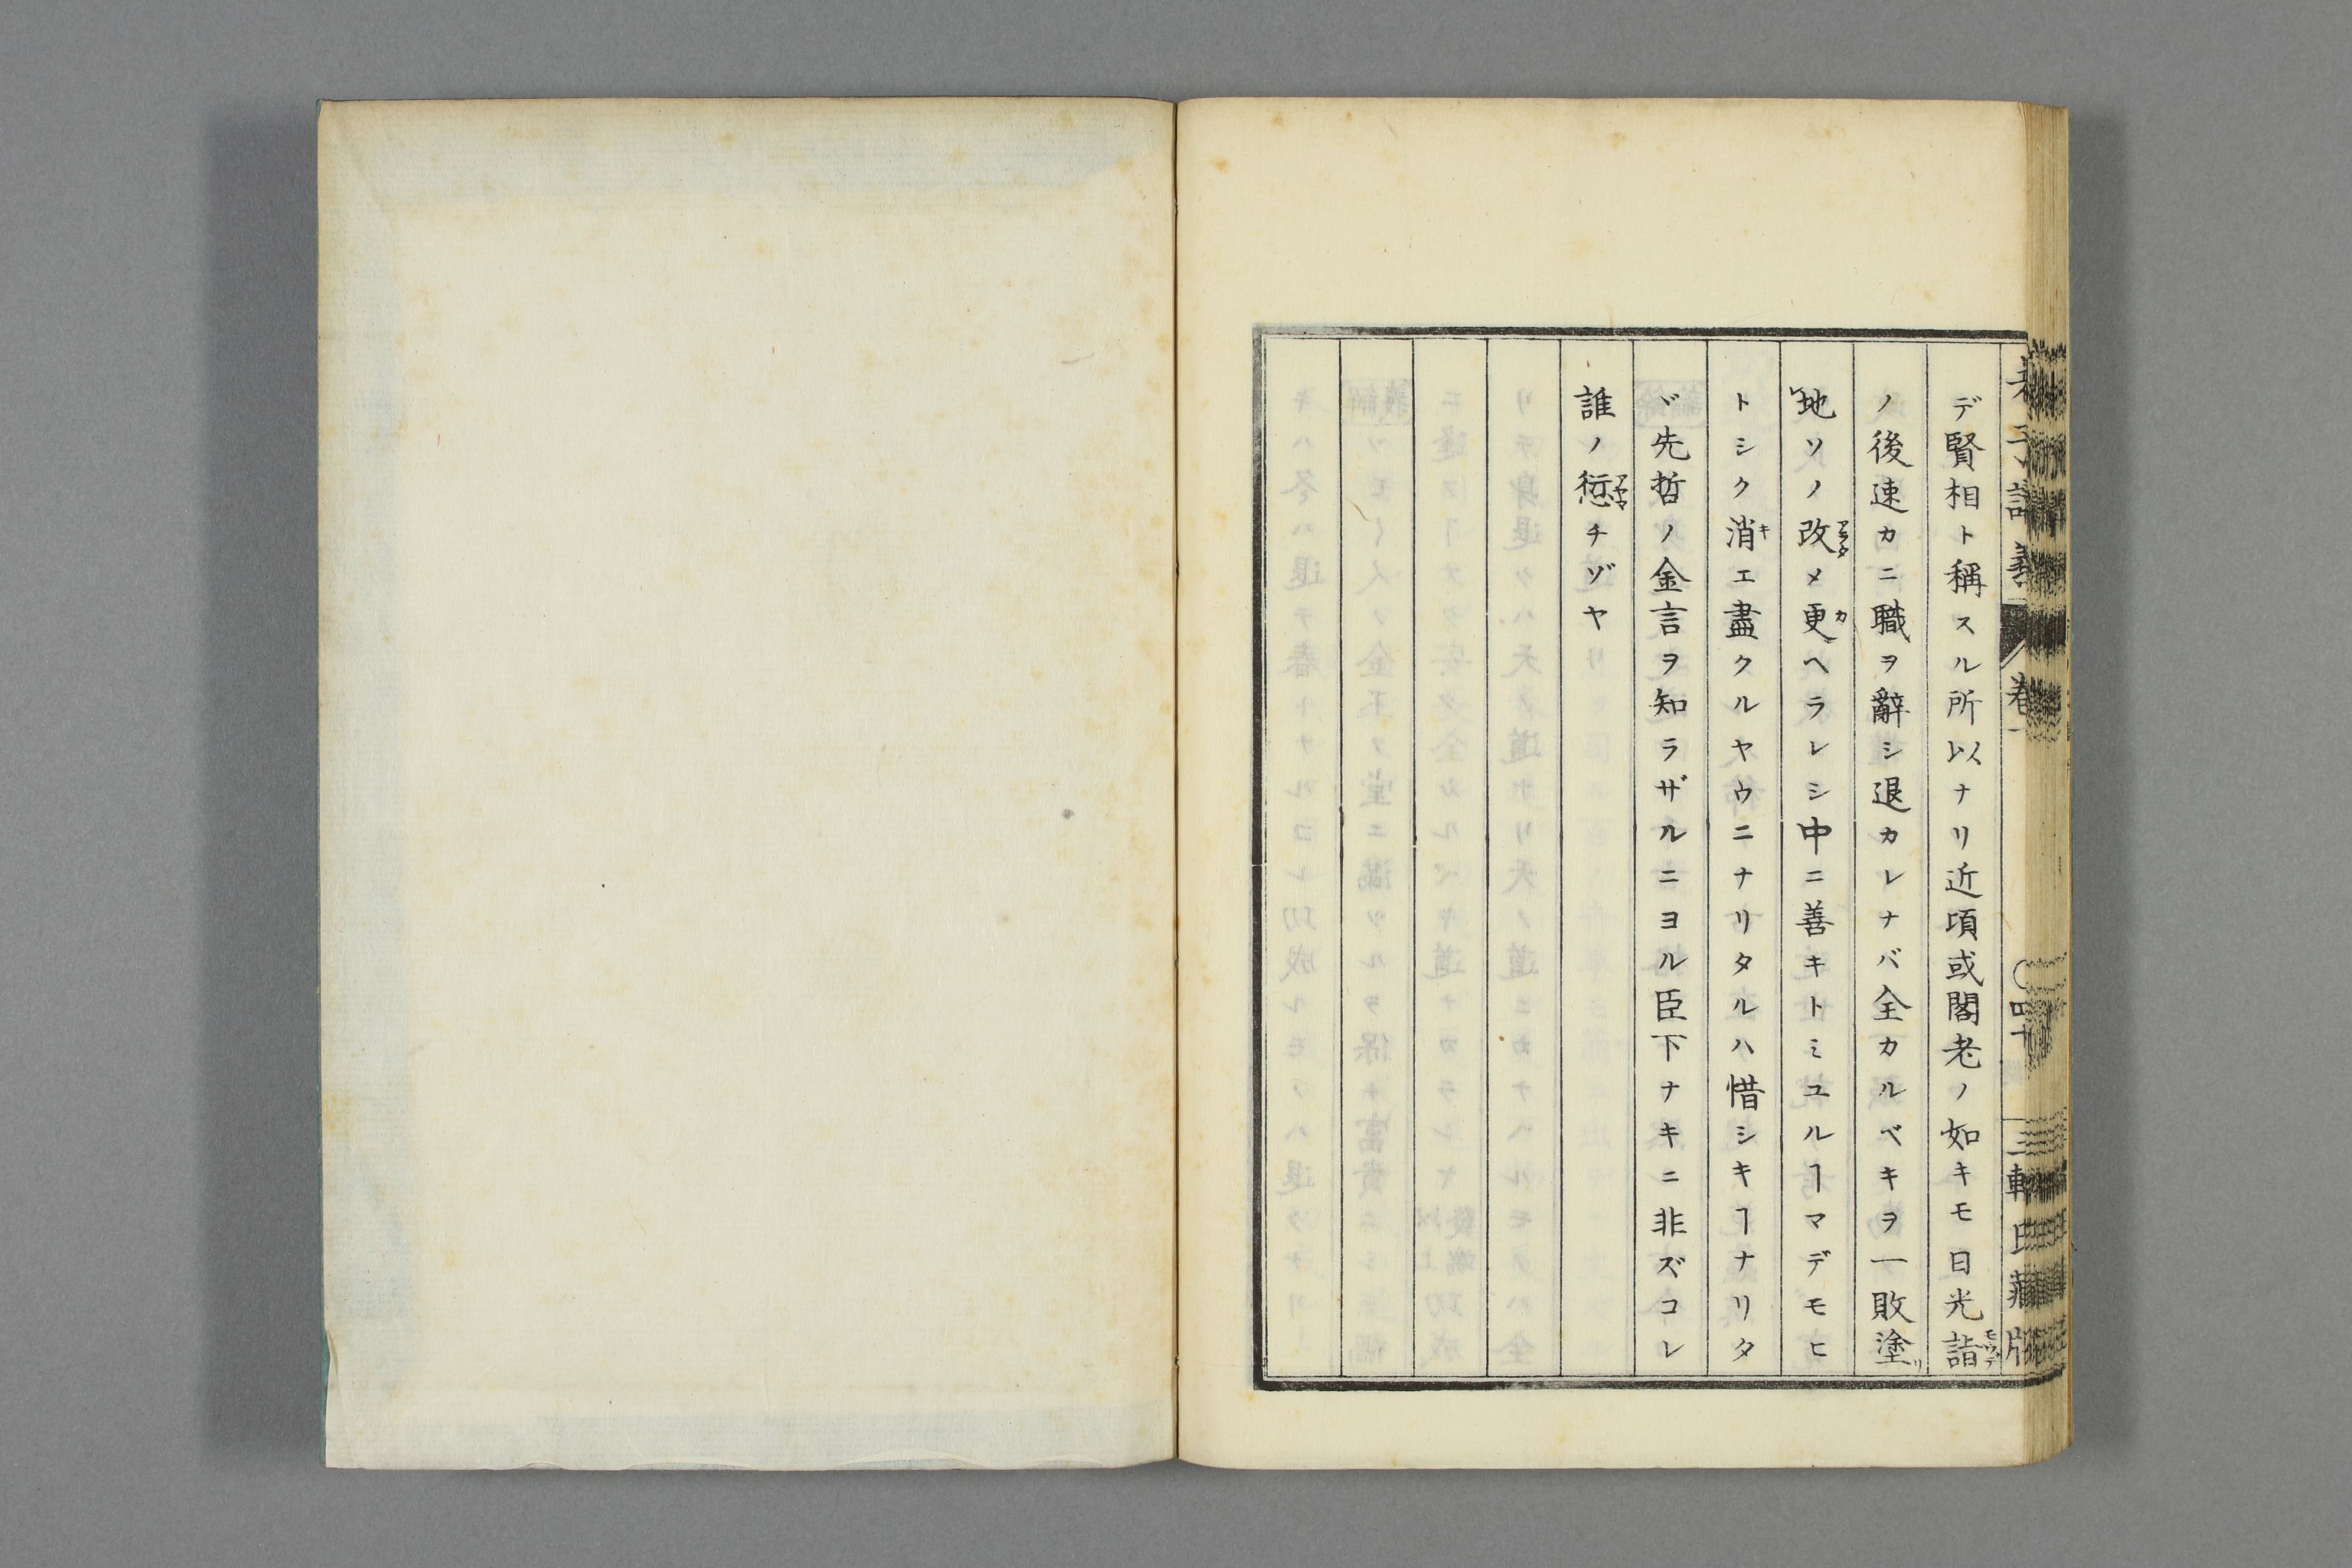 デ賢相ト稱スル所以ナリ近頃或閣老ノ如キモ日光詣モウデ
ノ後速カニ職ヲ辭シ退カレナバ全カルベキヲ一敗塗リ
レ地ソノ改アラタメ更カヘラレシ中ニ善キトミユルヿマデモヒ
トシク消キエ盡クルヤウニナリタルハ惜シキヿナリタ
ヾ先哲ノ金言ヲ知ラザルニヨル臣下ナキニ非ズコレ
誰ノ愆アヤマチゾヤ